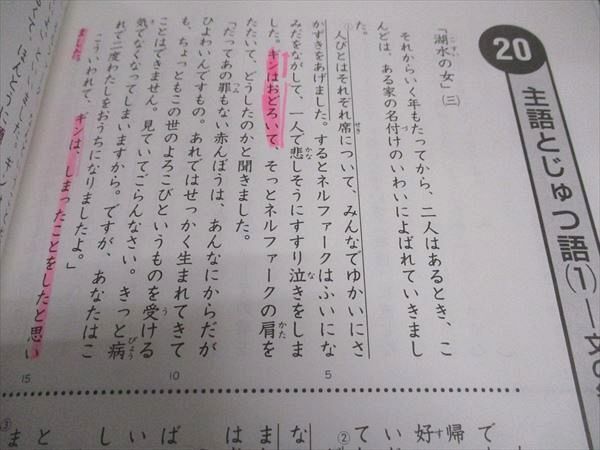 20
主語とじゅつ語(1)
「湖水の女」(三)
それからいく年もたってから、二人はあるとき、こ
んどは、ある家の名付けのいわいによばれていきまし
た。
①人びとはそれぞれ席について、みんなでゆかいにさ
かずきをあげました。するとネルファークはふいにな
みだをながして、一人で悲しそうにすすり泣きをしま
した。ギンはおどろいて、そっとネルファークの肩を
たたいて、どうしたのかと聞きました。
「だってあの罪もない赤んぼうは、あんなにからだが
ひよわいんですもの。あれではせっかく生まれてきて
も、ちょっともこの世のよろこびというものを受ける
ことはできません。見ていてごらんなさい。きっと病
気でなくなってしまいますから。ですが、あなたはこ
れで二度わたしをおうちになりましたよ。」
こういわれて、ギンは、しまったことをしたと思い
ました。
5
10
15
で
帰
好
②
て
な
ま
は
ば
い
し
と
ま
③